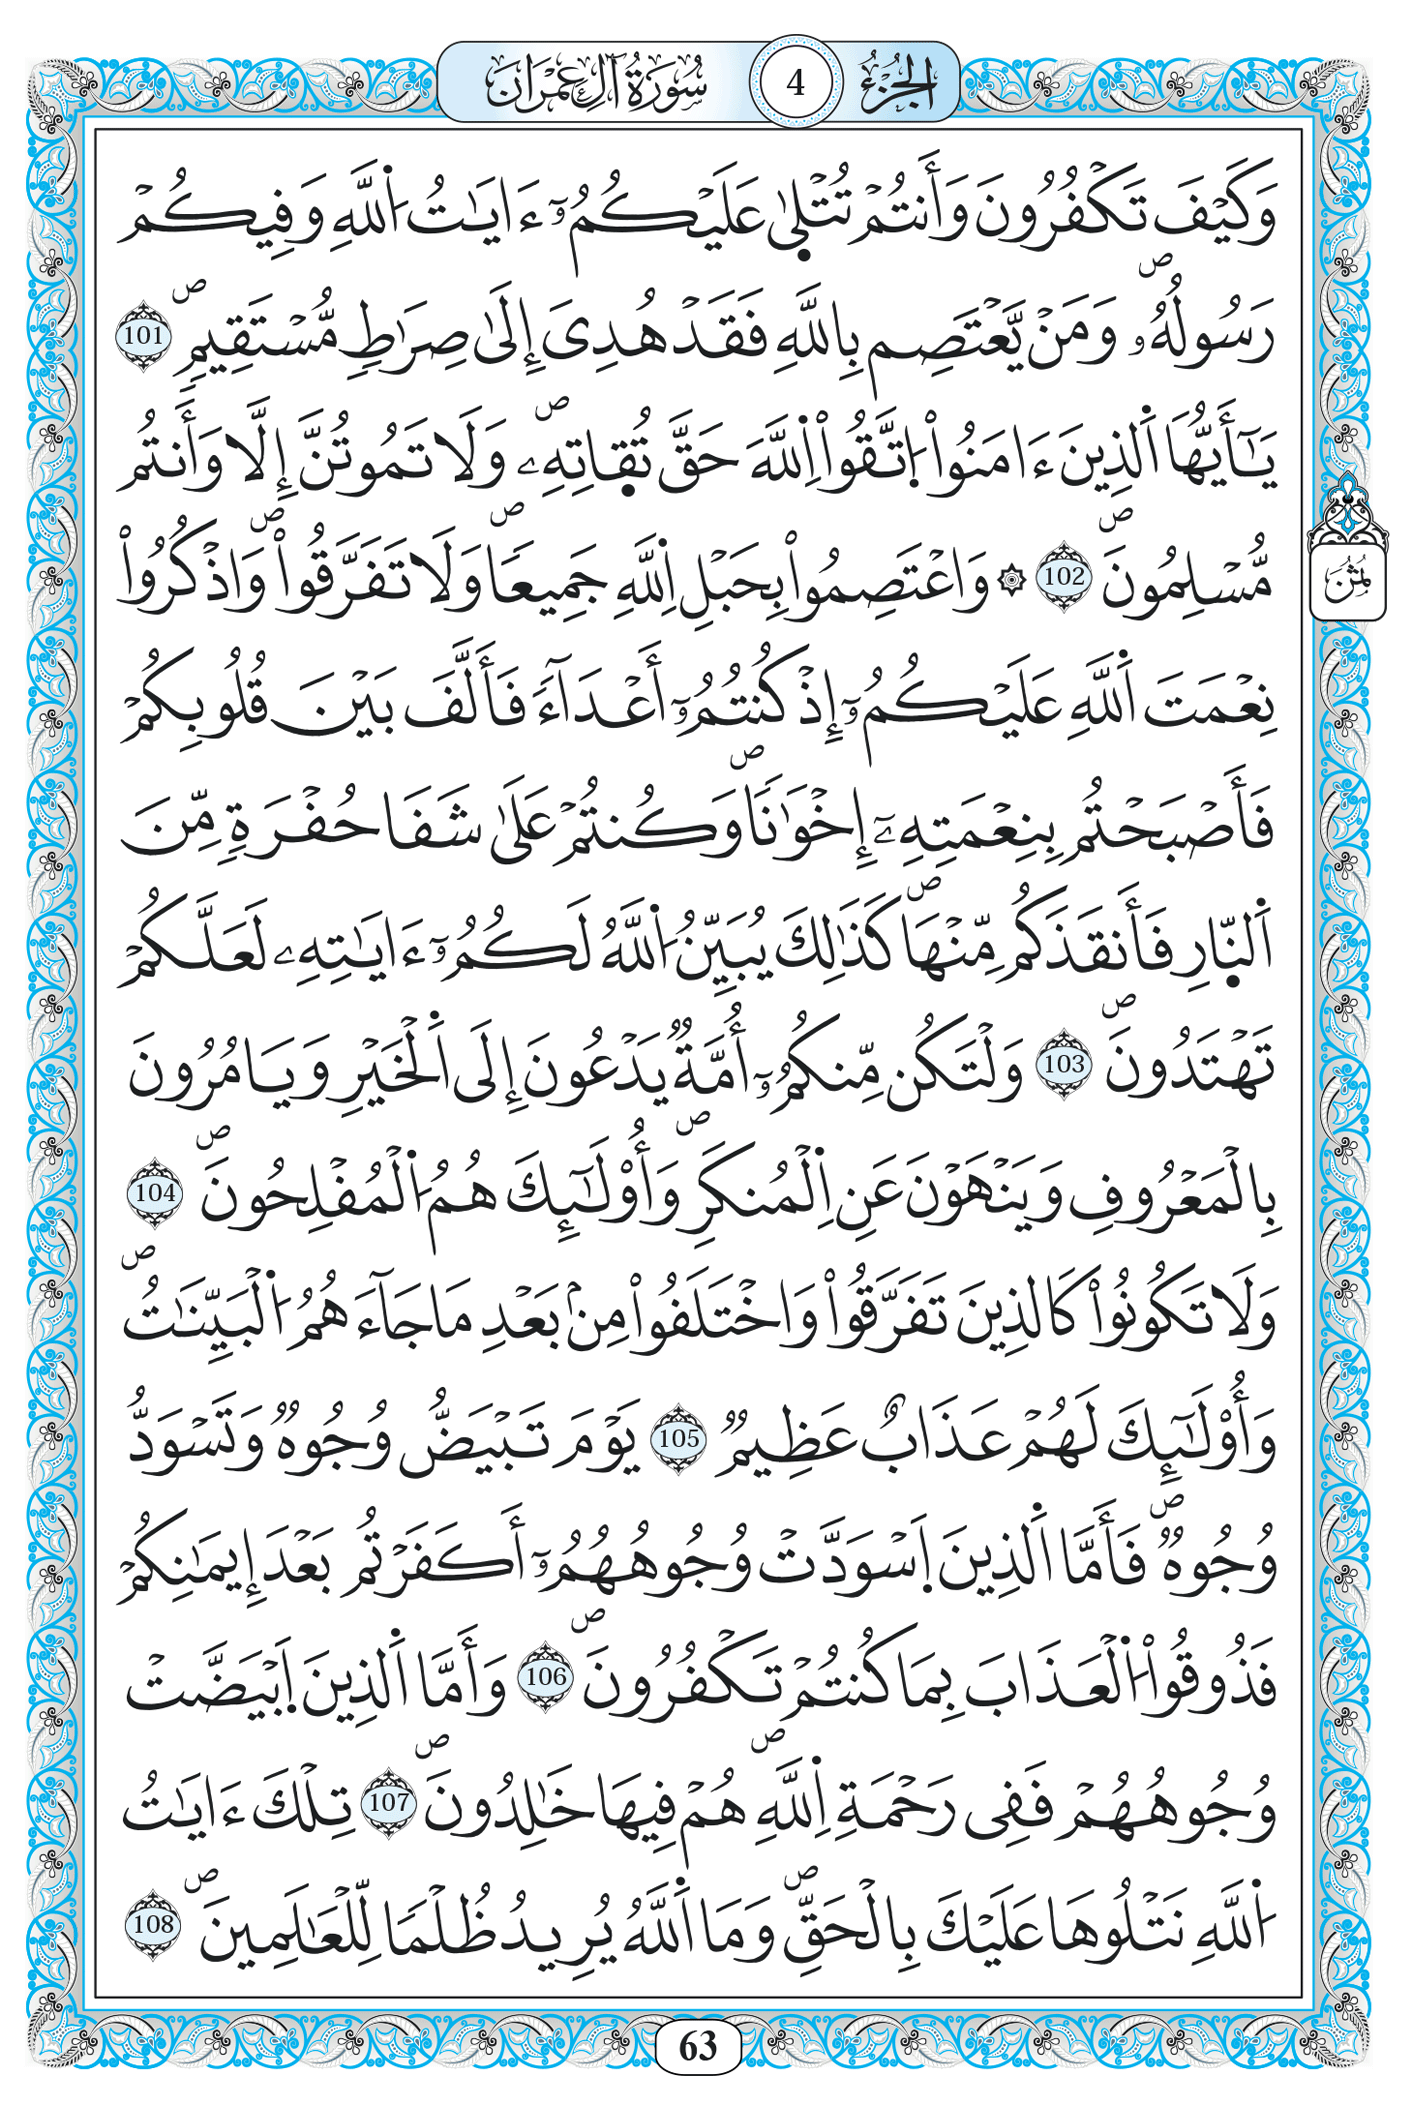 الجزء 4 سورة آل عمران
وَكَيْفَ تَكْفُرُونَ وَأَنتُمْ تُتْلٜىٰ عَلَيْكُمُۥٓ ءَايَٰتُ اُ۬للَّهِ وَفِيكُمْ
رَسُولُهُۥۖ وَمَنْ يَّعْتَصِم بِاللَّهِ فَقَدْ هُدِيَ إِلَىٰ صِرَٰطٖ مُّسْتَقِيمٖۖ 101
يَٰٓأَيُّهَا اَ۬لذِينَ ءَامَنُواْ اُ۪تَّقُواْ اُ۬للَّهَ حَقَّ تُقٜاتِهِۦۖ وَلَا تَمُوتُنَّ إِلَّا وَأَنتُم
مُّسْلِمُونَۖ 102 ۞ وَاعْتَصِمُواْ بِحَبْلِ اِ۬للَّهِ جَمِيعاٗ وَلَا تَفَرَّقُواْۖ وَاذْكُرُواْ
نِعْمَتَ اَ۬للَّهِ عَلَيْكُمُۥٓ إِذْ كُنتُمُۥٓ أَعْدَآءٗ فَأَلَّفَ بَيْنَ قُلُوبِكُمْ
فَأَصْبَحْتُم بِنِعْمَتِهِۦٓ إِخْوَٰناٗۖ وَكُنتُمْ عَلَىٰ شَفَا حُفْرَةٖ مِّنَ
اَ۬لنّٜارِ فَأَنقَذَكُم مِّنْهَاۖ كَذَٰلِكَ يُبَيِّنُ اُ۬للَّهُ لَكُمُۥٓ ءَايَٰتِهِۦ لَعَلَّكُمْ
تَهْتَدُونَۖ 103 وَلْتَكُن مِّنكُمُۥٓ أُمَّةٞ يَدْعُونَ إِلَى اَ۬لْخَيْرِ وَيَامُرُونَ
بِالْمَعْرُوفِ وَيَنْهَوْنَ عَنِ اِ۬لْمُنكَرِۖ وَأُوْلَٰٓئِكَ هُمُ اُ۬لْمُفْلِحُونَۖ 104
وَلَا تَكُونُواْ كَالذِينَ تَفَرَّقُواْ وَاخْتَلَفُواْ مِنۢ بَعْدِ مَا جَآءَهُمُ اُ۬لْبَيِّنَٰتُۖ
وَأُوْلَٰٓئِكَ لَهُمْ عَذَابٌ عَظِيمٞ 105 يَوْمَ تَبْيَضُّ وُجُوهٞ وَتَسْوَدُّ
وُجُوهٞۖ فَأَمَّا اَ۬لذِينَ اَ۪سْوَدَّتْ وُجُوهُهُمُۥٓ أَكَفَرْتُم بَعْدَ إِيمَٰنِكُمْ
فَذُوقُواْ اُ۬لْعَذَابَ بِمَا كُنتُمْ تَكْفُرُونَۖ 106 وَأَمَّا اَ۬لذِينَ اَ۪بْيَضَّتْ
وُجُوهُهُمْ فَفِي رَحْمَةِ اِ۬للَّهِۖ هُمْ فِيهَا خَٰلِدُونَۖ 107 تِلْكَ ءَايَٰتُ
اُ۬للَّهِ نَتْلُوهَا عَلَيْكَ بِالْحَقِّۖ وَمَا اَ۬للَّهُ يُرِيدُ ظُلْماٗ لِّلْعَٰلَمِينَۖ 108
ثمن
63